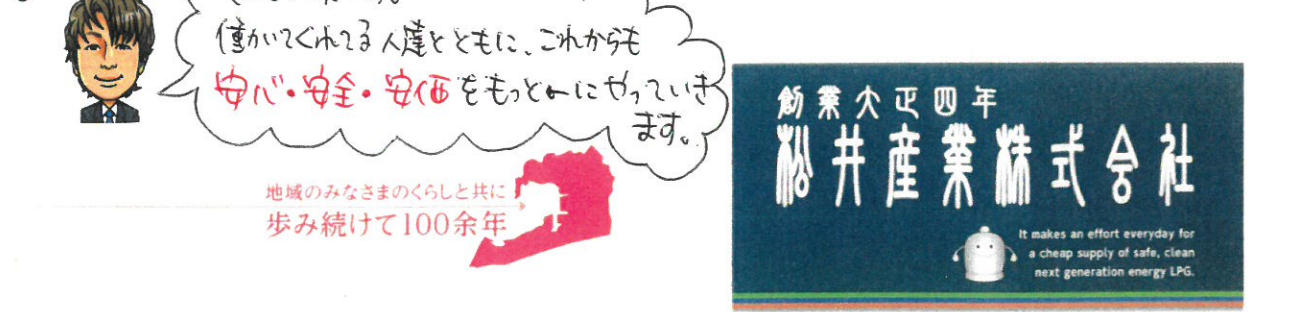 働いてくれてる人達とともに、これからも
安心・安全・安価をもっとーにやっていき
ます。
地域のみなさまのくらしと共に
歩み続けて100余年
創業大正四年
松井産業株式会社
It makes an effort everyday for
a cheap supply of safe, clean
next generation energy LPG.